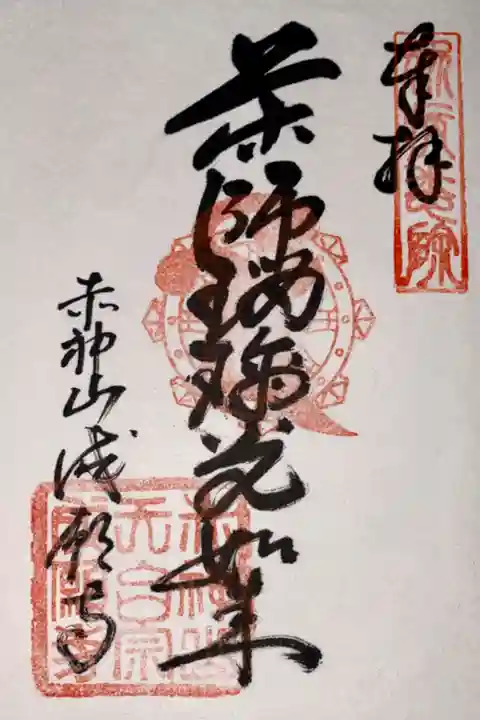 奉拝
薬師瑠璃光如来
赤神山成願寺
天台宗